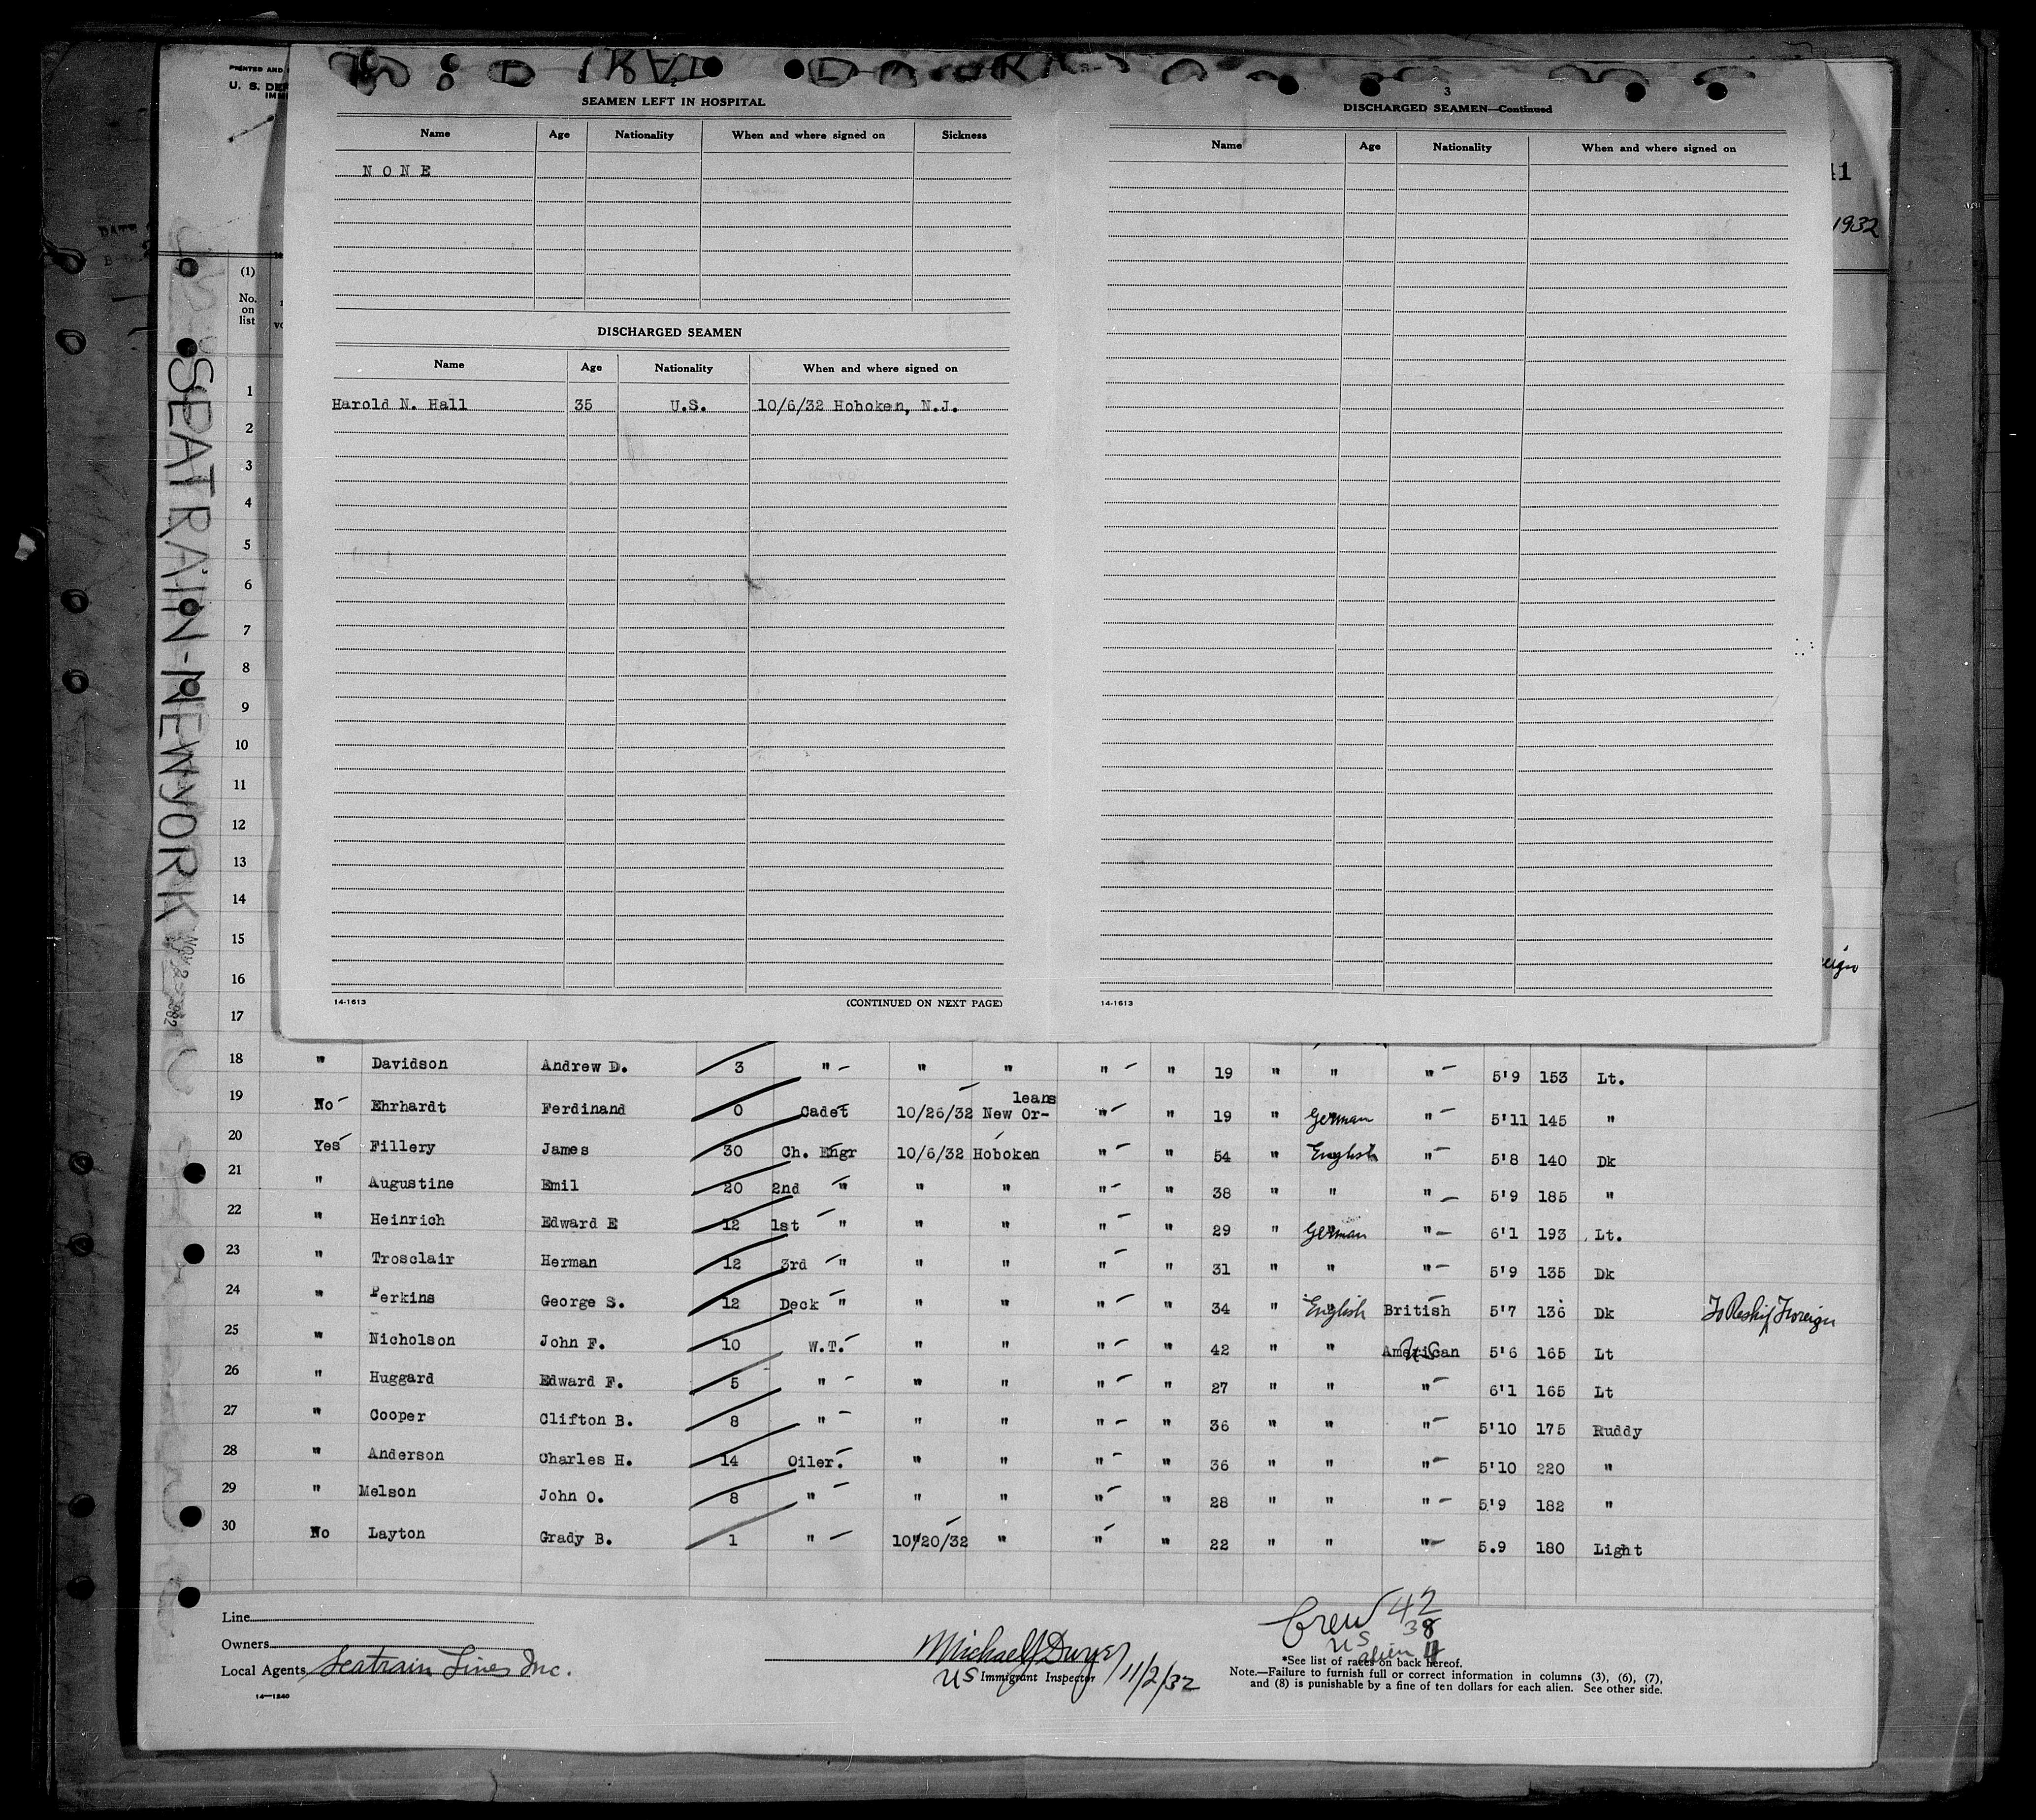 PRINTED AND
U. S. DEP
IMMI
2
SEAMEN LEFT IN HOSPITAL
Name Age Nationality When and where signed on Sickness
NONE
DISCHARGED SEAMEN
Name Age Nationality When and where signed on
Harold N. Hall 35 U.S. 10/6/32 Hoboken, N.J.
14-1613 (CONTINUED ON NEXT PAGE)
3
DISCHARGED SEAMEN—Continued
Name Age Nationality When and where signed on
14-1613
41
1932
(1)
No.
on
list
SEATRAIN-NEW YORK
1
2
3
4
5
6
7
8
9
10
11
12
13
14
15
16
17
18 " Davidson Andrew D. 3 " " " " " 19 " " " 5'9 153 Lt.
leans
19 No Ehrhardt Ferdinand 0 Cadet 10/26/32 New Or- " " 19 " German " 5'11 145 "
20 Yes Fillery James 30 Ch. Engr 10/6/32 Hoboken " " 54 " English " 5'8 140 Dk
21 " Augustine Emil 20 2nd " " " " " 38 " " " 5'9 185 "
22 " Heinrich Edward E 12 1st " " " " " 29 " German " 6'1 193 Lt.
23 " Trosclair Herman 12 3rd " " " " " 31 " " " 5'9 135 Dk
24 " Perkins George S. 12 Deck " " " " " 34 " English British 5'7 136 Dk To Reship Foreign
25 " Nicholson John F. 10 W.T. " " " " 42 " " American US 5'6 165 Lt
26 " Huggard Edward F. 5 " " " " " 27 " " " 6'1 165 Lt
27 " Cooper Clifton B. 8 " " " " " 36 " " " 5'10 175 Ruddy
28 " Anderson Charles H. 14 Oiler. " " " " 36 " " " 5'10 220 "
29 " Melson John O. 8 " " " " " 28 " " " 5'9 182 "
30 No Layton Grady B. 1 " 10/20/32 " " " 22 " " " 5.9 180 Light
Line
Owners
Local Agents Seatrain Lines Inc.
14—1240
Michael J Dwyer
US Immigrant Inspector 11/2/32
Crew 42
US 38
alien 4
*See list of races on back hereof.
Note.—Failure to furnish full or correct information in columns (3), (6), (7),
and (8) is punishable by a fine of ten dollars for each alien. See other side.